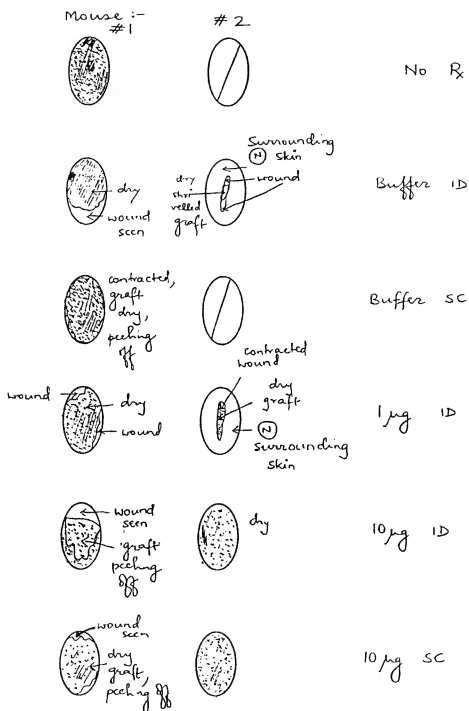 Mouse :-
#1
# 2
No Rx
Surrounding
(N) skin
dry
wound
dry
shri
velled
graft
wound
seen
Buffer ID
contracted,
graft
dry,
peeling
off
Buffer SC
contracted
wound
dry
graft
wound
dry
wound
(N)
Surrounding
skin
1 µg ID
wound
seen
graft
peeling
off
dry
10 µg ID
wound
seen
dry
graft,
peeling off
10 µg SC